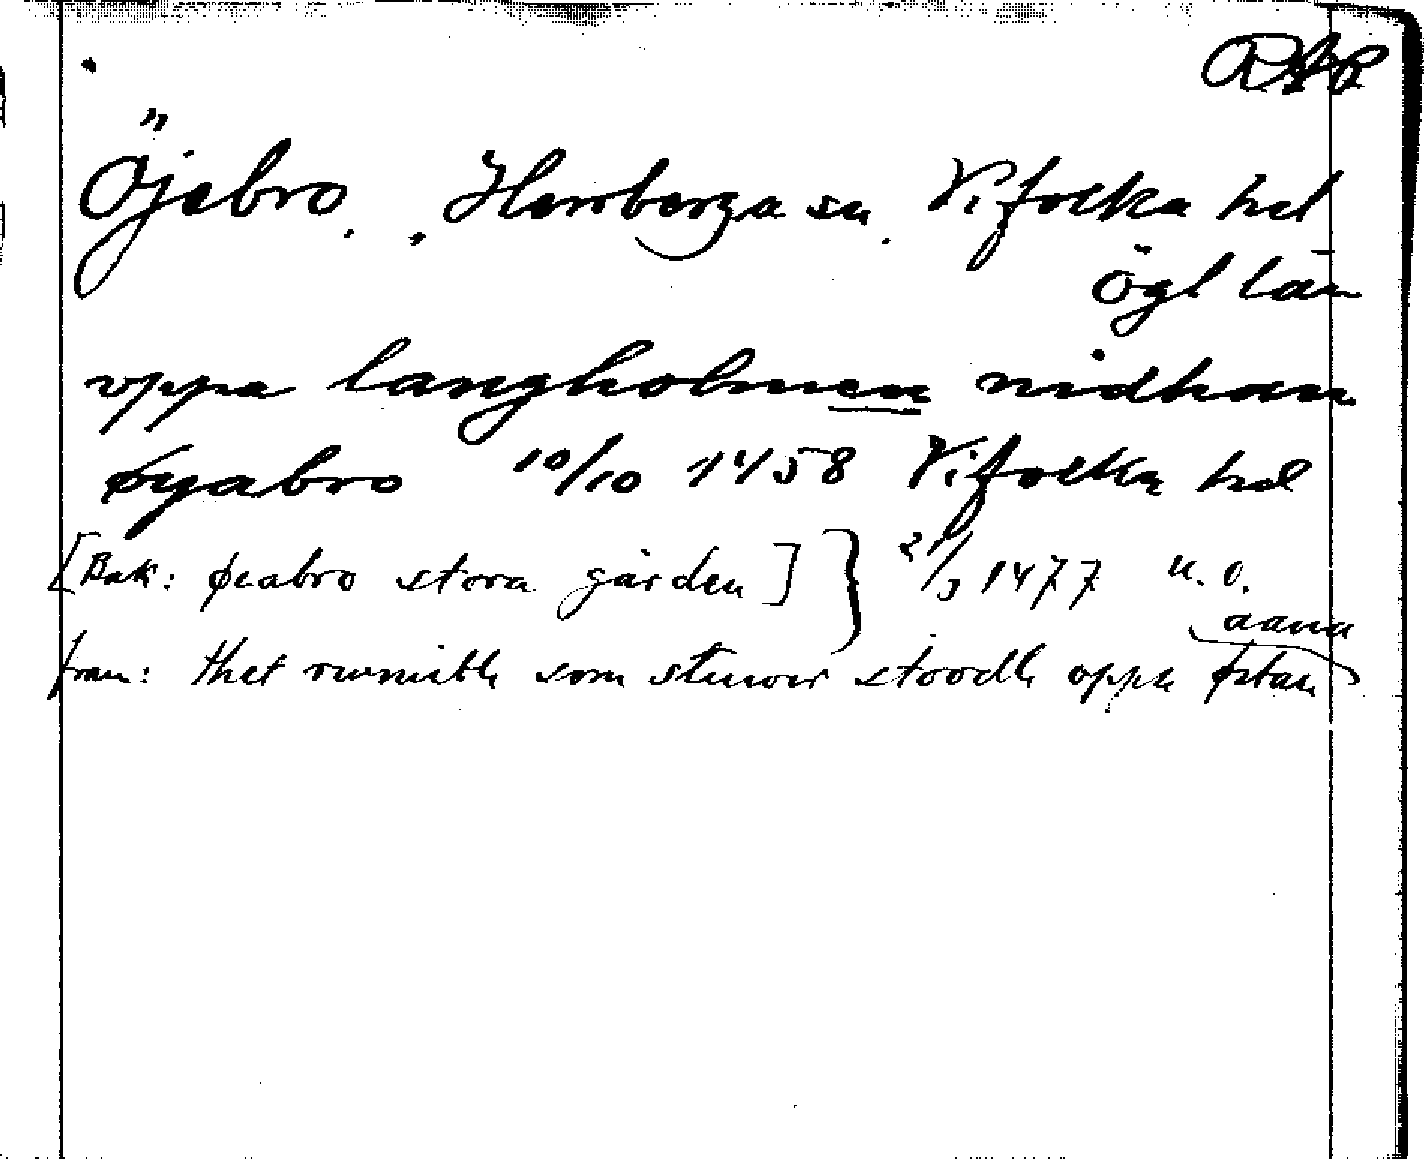 RAP
Öjebro. Herrberga sn. Vifolka hd
Ögl län
oppa langholmen nidhan
øyabro 10/10 1458 Vifolka hd
[Bak: øeabro stora gården] } 21/3 1477 u. o.
fram: thet som stoodh oppa østan
aana